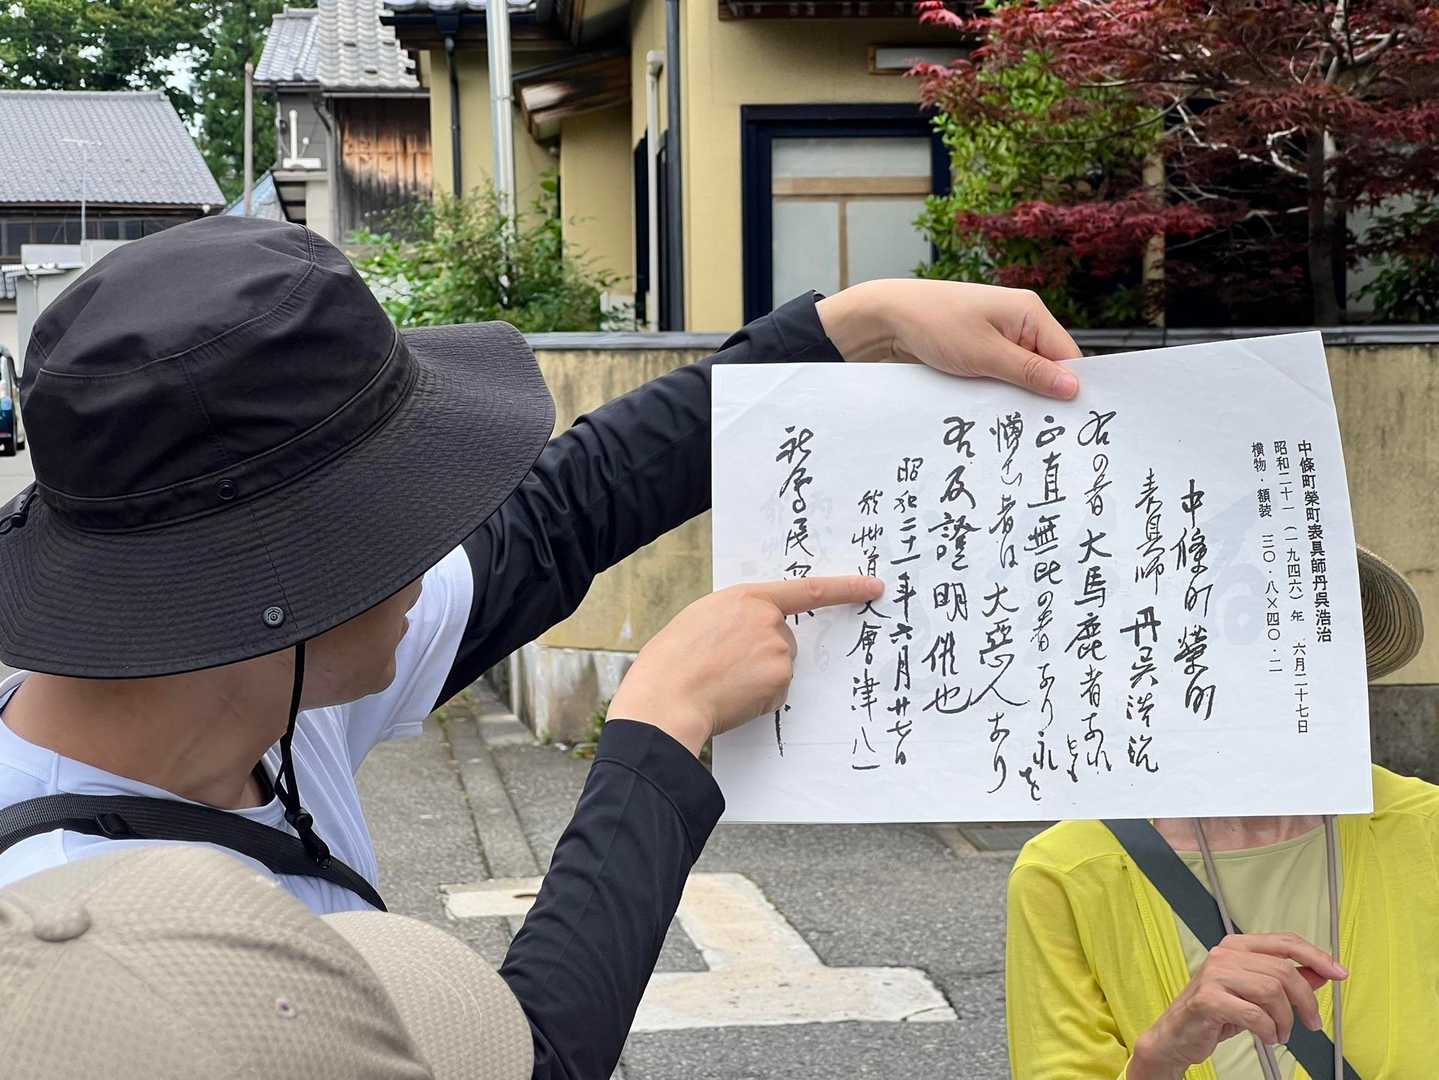 中條町榮町表具師丹呉浩治
昭和二十一(一九四六)年 六月二十七日
横物・額装 三〇・八×四〇・二
中條町榮町
表具師 丹呉浩治
右の者大馬鹿者なれとも
正直無比の者なり 之を
憎む者は大惡人なり
右及證明候也
昭和二十一年六月廿七日
於
道人會津八一